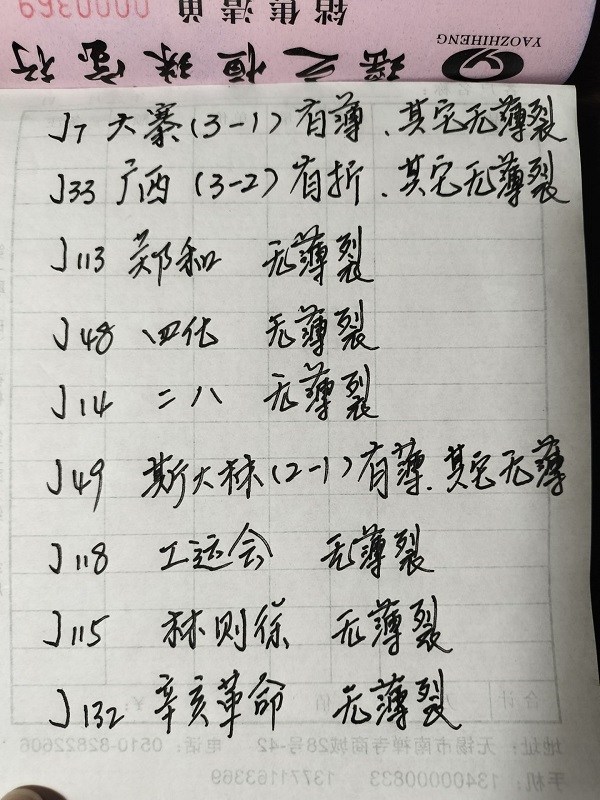 0000369
销售清单
瑶之恒珠宝行
YAOZHIHENG
J7 大寨(3-1)有薄、其它无薄裂
J33 广西(3-2)有折、其它无薄裂
J113 郑和 无薄裂
J48 四化 无薄裂
J14 二八 无薄裂
J49 斯大林(2-1)有薄.其它无薄
J118 工运会 无薄裂
J115 林则徐 无薄裂
J132 辛亥革命 无薄裂
合计
地址：无锡市南禅寺商城28号-42 电话：0510-82822606
手机：13400000833 13771163369